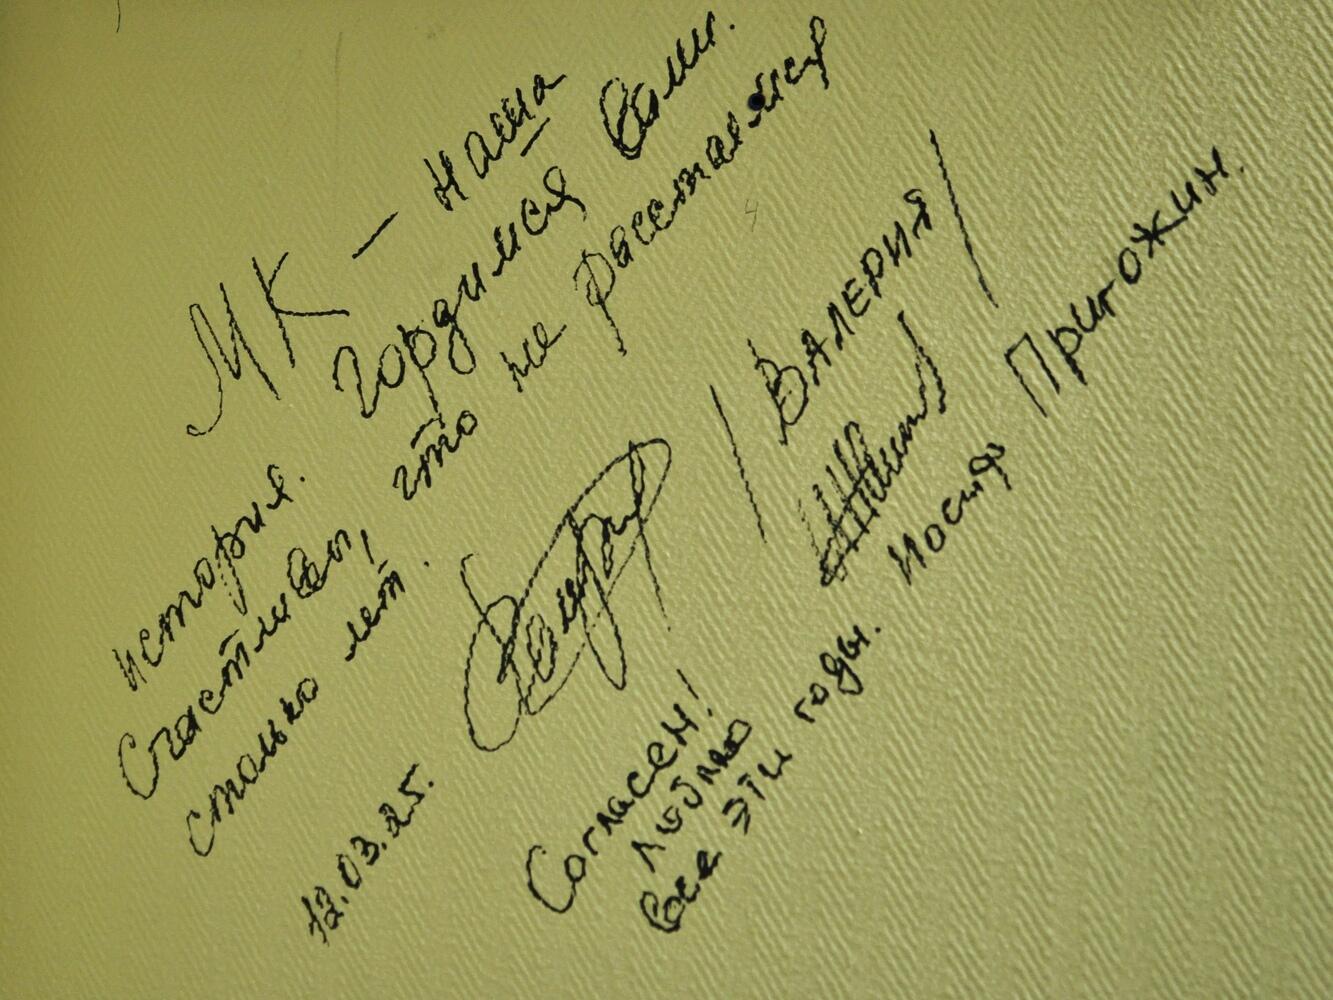 МК – наша
история. Гордимся Вами.
Счастливы, что не расстаемся
столько лет.
/ВАЛЕРИЯ/
12.03.25.
Согласен!
Люблю
все эти годы. Иосиф Пригожин.